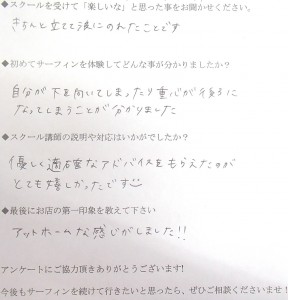 ◆スクールを受けて「楽しいな」と思った事をお聞かせください。
きちんと立てて波にのれたことです
◆初めてサーフィンを体験してどんな事が分かりましたか？
自分が下を向いてしまったり重心が後ろに
なってしまうことが分かりました
◆スクール講師の説明や対応はいかがでしたか？
優しく適確なアドバイスをもらえたのが
とても嬉しかったです
◆最後にお店の第一印象を教えて下さい
アットホームな感じがしました!!
アンケートにご協力頂きありがとうございます!
今後もサーフィンを続けて行きたいと思ったら、ぜひご相談くださいませ!